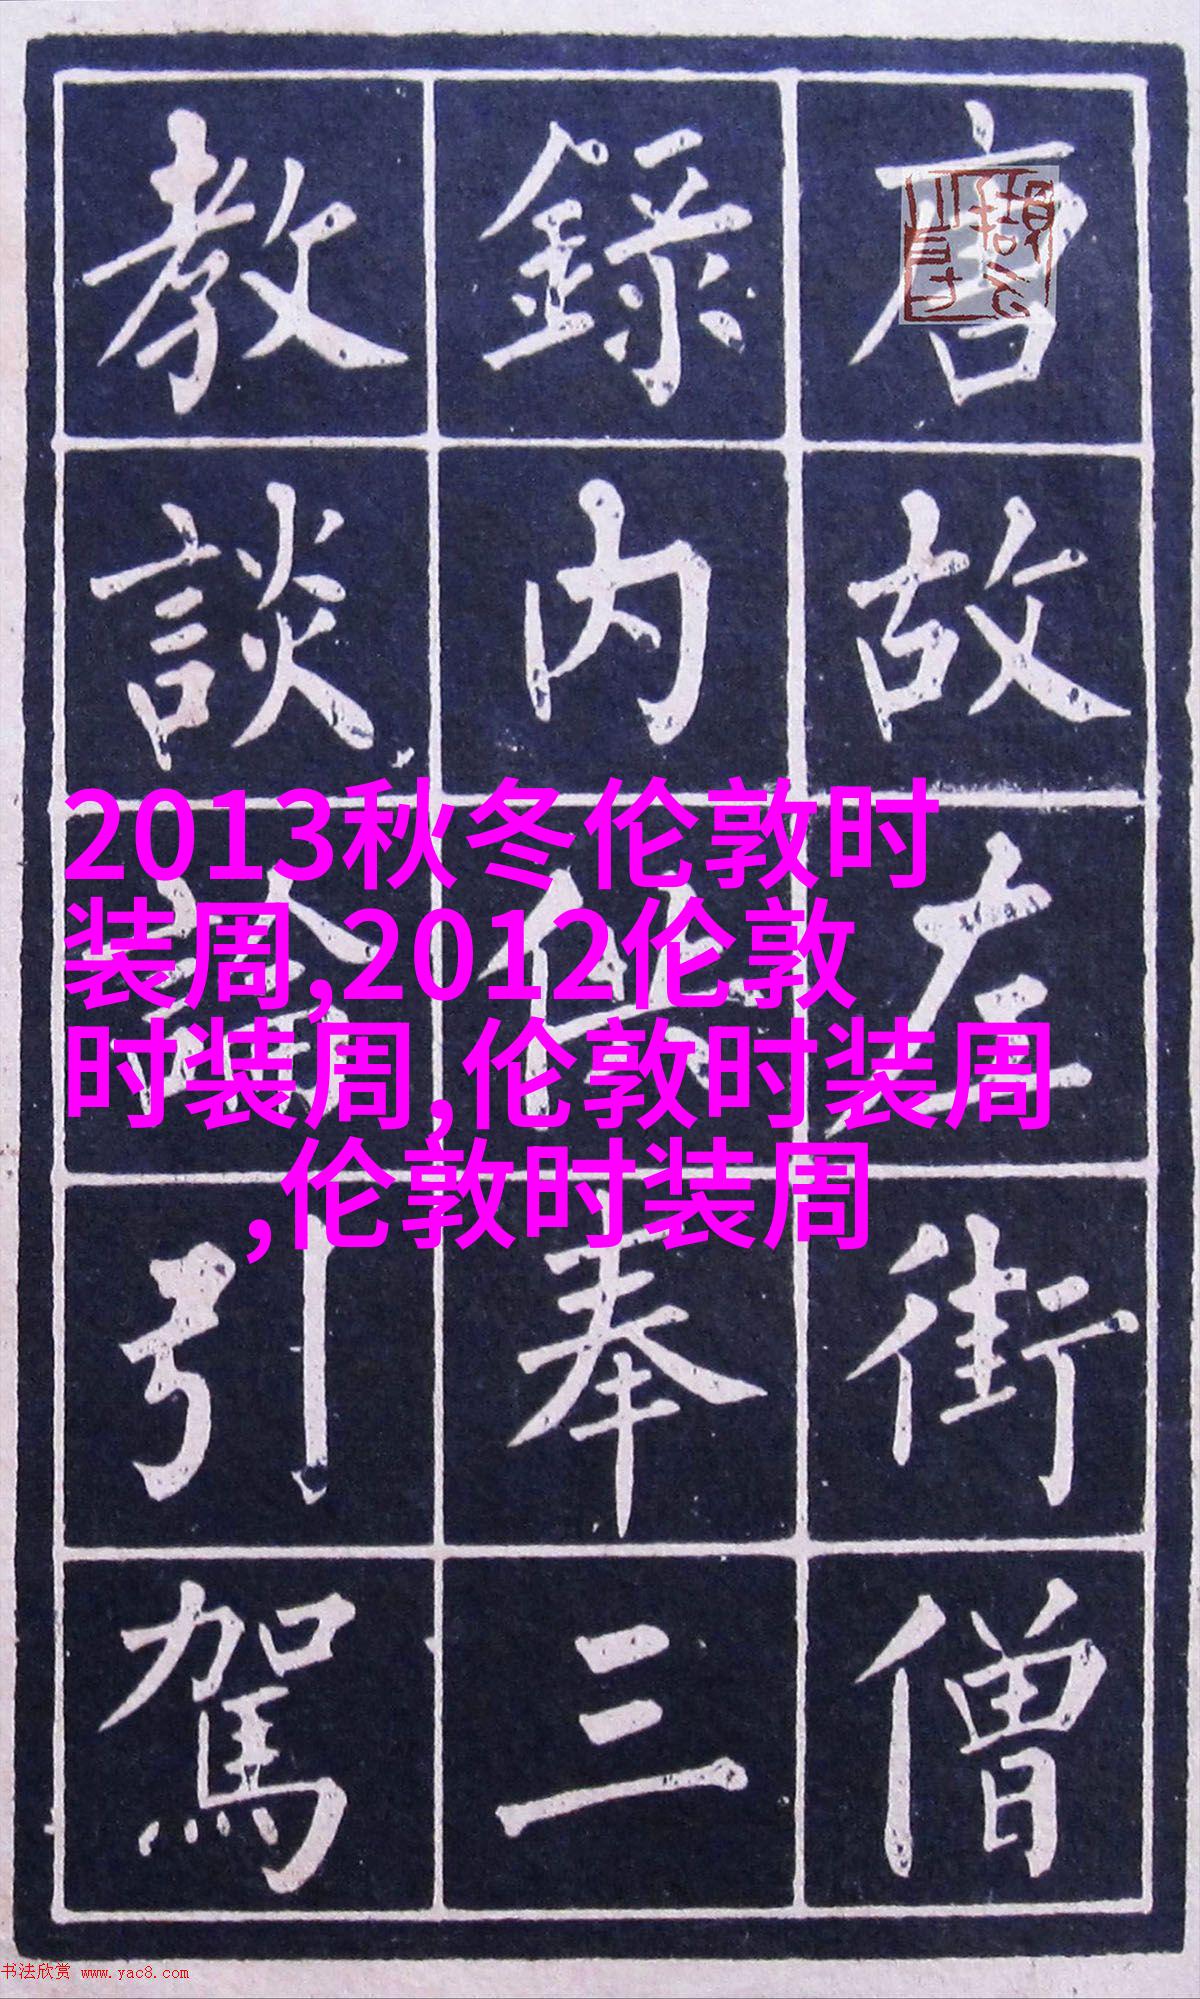 唐故左街僧
錄內供奉三
教談論引駕
2013秋冬伦敦时
装周,2012伦敦
时装周,伦敦时装周
,伦敦时装周
书法欣赏 www.yac8.com